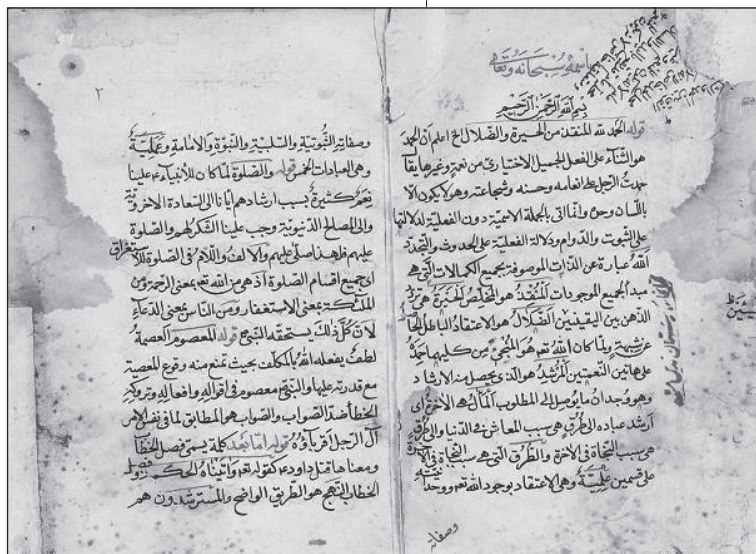 باسمه سبحانه وتعالى
بسم الله الرحمن الرحيم
قوله الحمد لله المنقذ من الحيرة والضلال الخ اعلم ان الحمد
هو الثناء على الفعل الجميل الاختياري من نعمة وغيرها يقا
حمدت الرجل على انعامه وحسنه وشجاعته وهو لا يكون الا
باللسان وحده وانما اتى بالجملة الاسمية دون الفعلية لدلالتها
على الثبوت والدوام ودلالة الفعلية على الحدوث والتجدد
الله عبارة عن الذات الموصوفة بجميع الكمالات التي هي
مبدا لجميع الموجودات المنقذ هو المخلص الحيرة هي تردد
الذهن بين اليقينين الضلال هو الاعتقاد الباطل الحاصل
عن شبهة ولما كان الله تعم هو المنجي من كليهما حمد
على هاتين النعمتين المرشد هو الذي يحصل منه الارشاد
وهو وجدان ما يوصل الى المطلوب المآل هي الاخرة اى
ارشد عباده الى طرق هي سبب المعاش في الدنيا والى طرق
هي سبب النجاة في الاخرة والطرق التي هي سبب النجاة في الاخرة
على قسمين علمية وهي الاعتقاد بوجود الله تعم ووحدانيته
وصفاته
٢
وصفاته الثبوتية والسلبية والنبوة والامامة وعملية
وهي العبادات الخمس قوله والصلوة لما كان للانبياء علينا
نعم كثيرة بسبب ارشادهم ايانا الى السعادة الاخروية
والى المصالح الدنيوية وجب علينا الشكر لهم والصلوة
عليهم فلهذا صلى عليهم والالف واللام في الصلوة للاستغراق
اى جميع اقسام الصلوة اذ هي من الله تعم بمعنى الرحمة ومن
الملئكة بمعنى الاستغفار ومن الناس بمعنى الدعاء
لان كل ذلك يستحقه النبي قوله المعصوم العصمة
لطف يفعله الله بالمكلف بحيث تمنع منه وقوع المعصية
مع قدرته عليها والنبي معصوم في اقواله وافعاله وتروكه
الخطأ ضد الصواب والصواب هو المطابق لما في نفس الامر
آل الرجل اقرباؤه قوله اما بعد كلمة يسمى فصل الخطاب
ومعناها قبل داود كقوله تعم واتيناه الحكمة وفصل
الخطاب النهج هو الطريق الواضح والمسترشدون هم